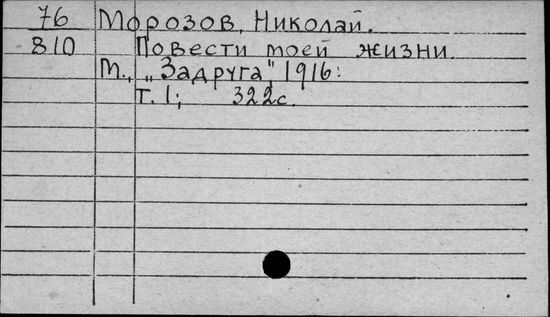 76 Морозов, Николай.
810 Повести моей жизни.
М., „Задруга", 1916:
Т. 1; 322с.